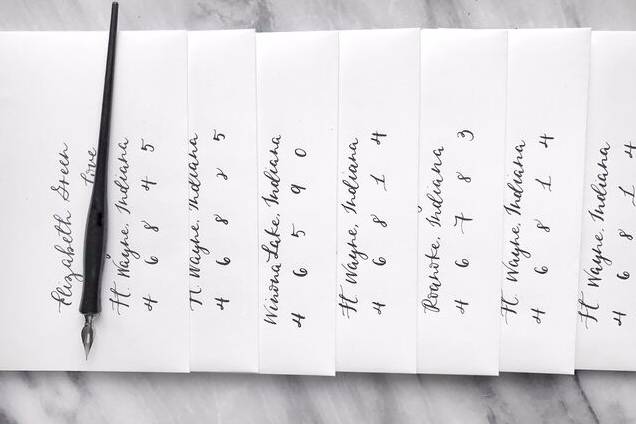 Elizabeth Green
Ft. Wayne, Indiana
4 6 8 4 5
Ft. Wayne, Indiana
4 6 8 2 5
Winona Lake, Indiana
4 6 5 9 0
Ft. Wayne, Indiana
4 6 8 1 4
Roanoke, Indiana
4 6 7 8 3
Ft. Wayne, Indiana
4 6 8 1 4
Ft. Wayne, Indiana
4 6 8 1 4